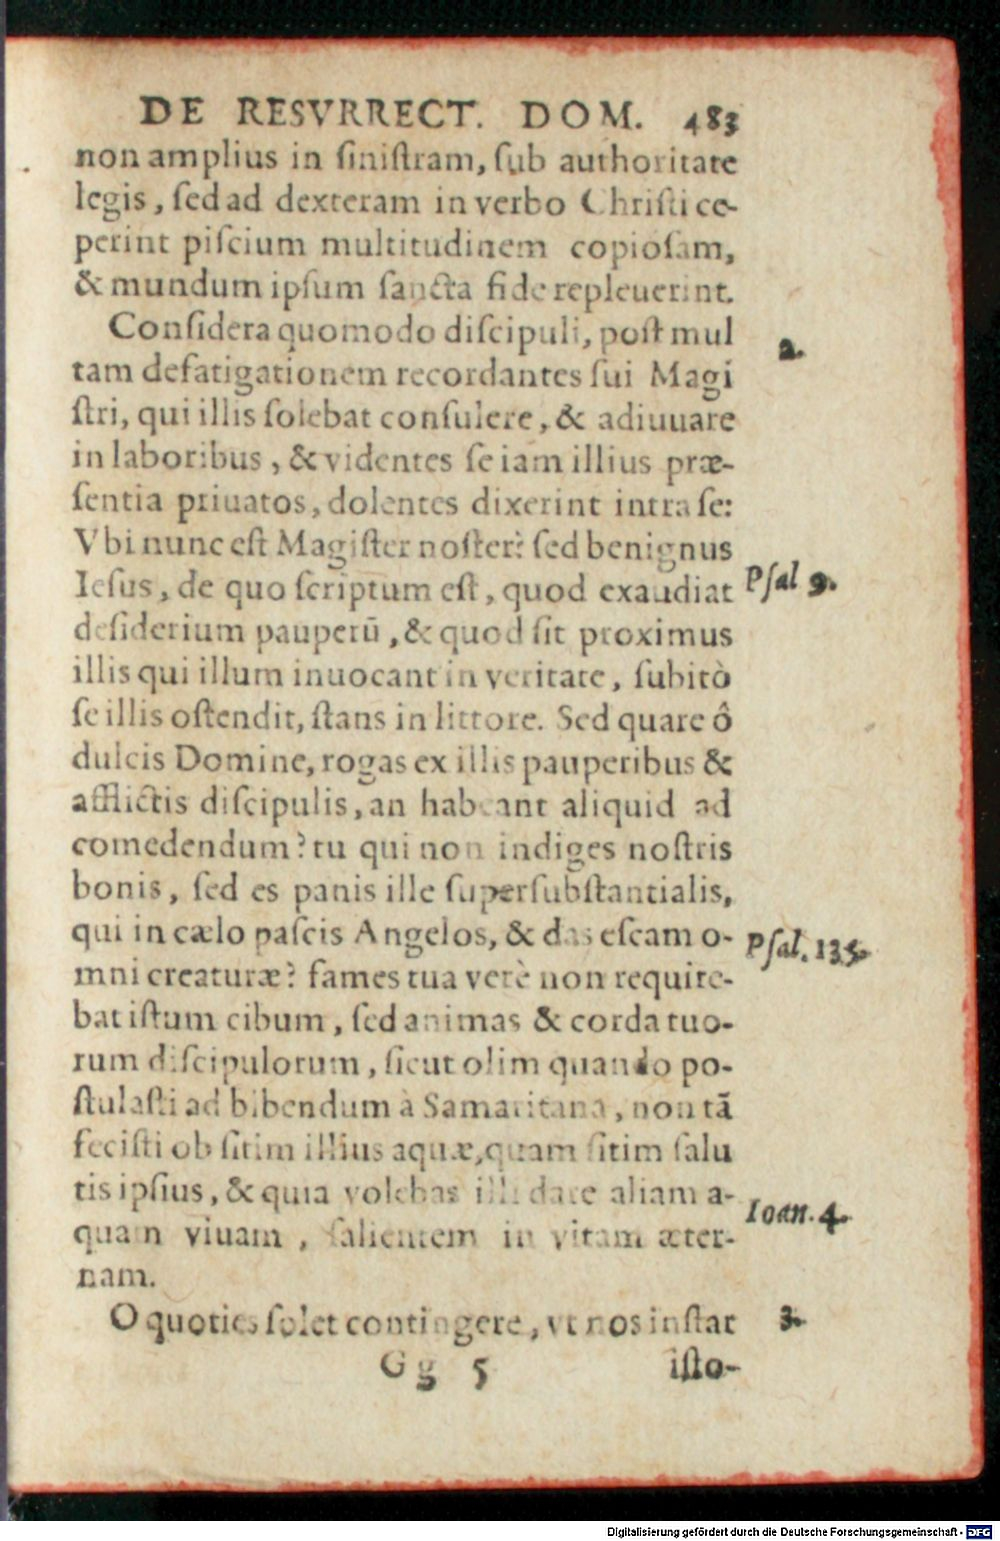 DE RESVRRECT. DOM. 483
non amplius in siniſtram, ſub authoritate
legis, ſed ad dexteram in verbo Chriſti ce-
perint piſcium multitudinem copioſam,
& mundum ipſum ſancta fide repleuerint.
Conſidera quomodo diſcipuli, poſt mul
2.
tam defatigationem recordantes ſui Magi
ſtri, qui illis ſolebat conſulere, & adiuuare
in laboribus, & videntes ſe iam illius præ-
ſentia priuatos, dolentes dixerint intra ſe:
Vbi nunc eſt Magiſter noſter? ſed benignus
Ieſus, de quo ſcriptum eſt, quod exaudiat
Pſal 9.
deſiderium pauperū, & quod ſit proximus
illis qui illum inuocant in veritate, ſubitò
ſe illis oſtendit, ſtans in littore. Sed quare ô
dulcis Domine, rogas ex illis pauperibus &
afflictis diſcipulis, an habeant aliquid ad
comedendum? tu qui non indiges noſtris
bonis, ſed es panis ille ſuperſubſtantialis,
qui in cælo paſcis Angelos, & das eſcam o-
Pſal. 135.
mni creaturæ? fames tua verè non require-
bat iſtum cibum, ſed animas & corda tuo-
rum diſcipulorum, ſicut olim quando po-
ſtulaſti ad bibendum à Samaritana, non tā
feciſti ob ſitim illius aquæ, quam ſitim ſalu
tis ipſius, & quia volebas illi dare aliam a-
Ioan. 4.
quam viuam, ſalientem in vitam æter-
nam.
O quoties ſolet contingere, vt nos inſtar
3.
Gg 5 iſto-
Digitalisierung gefördert durch die Deutsche Forschungsgemeinschaft - DFG